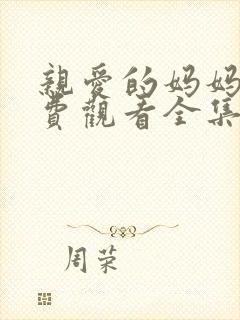 親愛的妈妈
費觀看全集
周荣